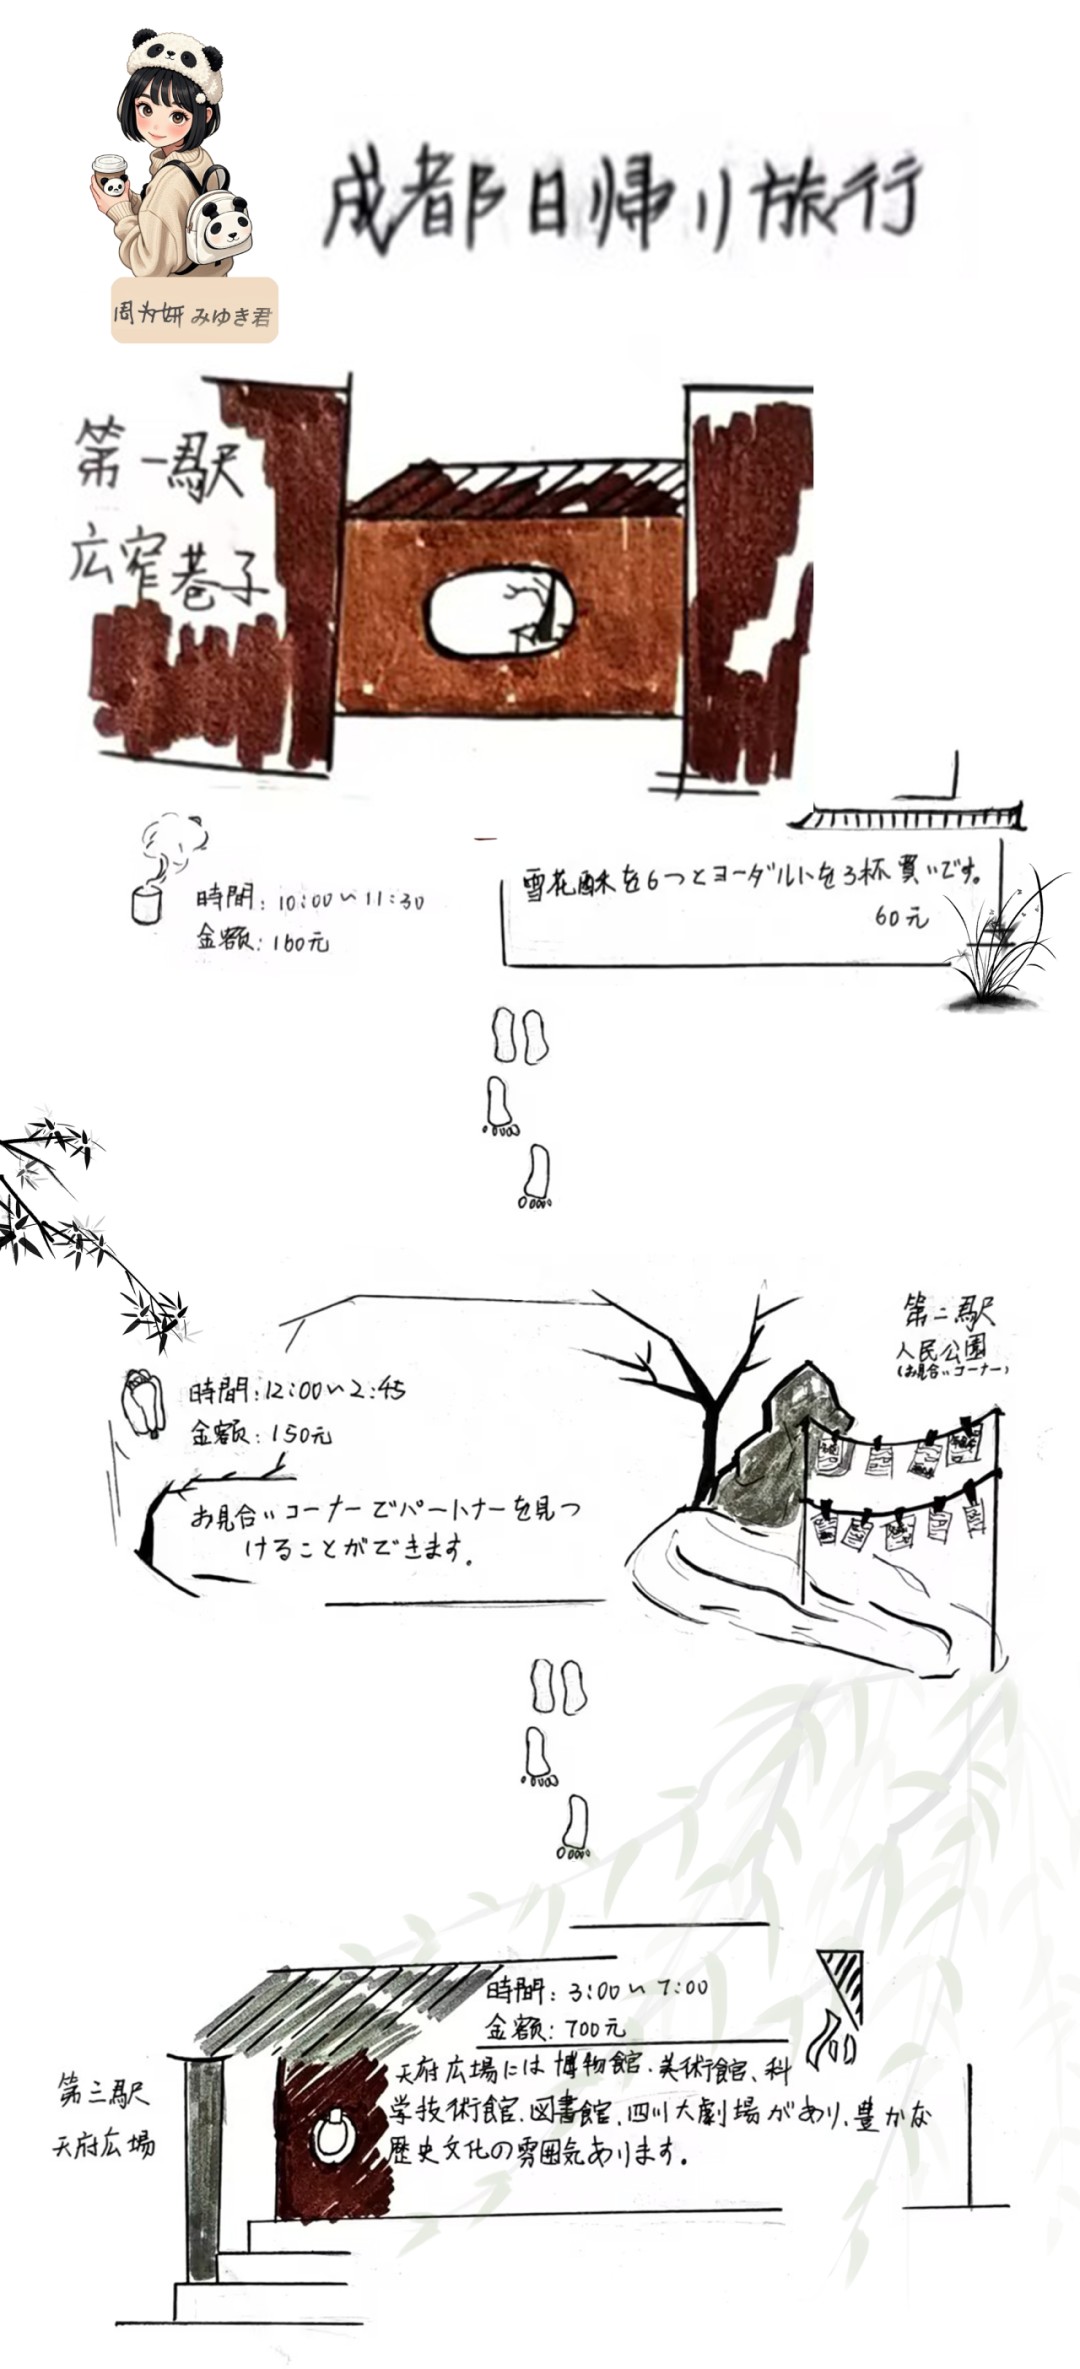 成都日帰り旅行
周为妍 みゆき君
第一駅
広窄巷子
時間：10:00～11:30
金额：160元
雪花酥を6つとヨーグルトを3杯買いです。
60元
第二駅
人民公園
(お見合いコーナー)
時間：12:00～2:45
金额：150元
お見合いコーナーでパートナーを見つ
けることができます。
時間：3:00～7:00
金额：700元
第三駅
天府広場
天府広場には博物館.美術館、科
学技術館.図書館.四川大劇場があり、豊かな
歴史文化の雰囲気あります。